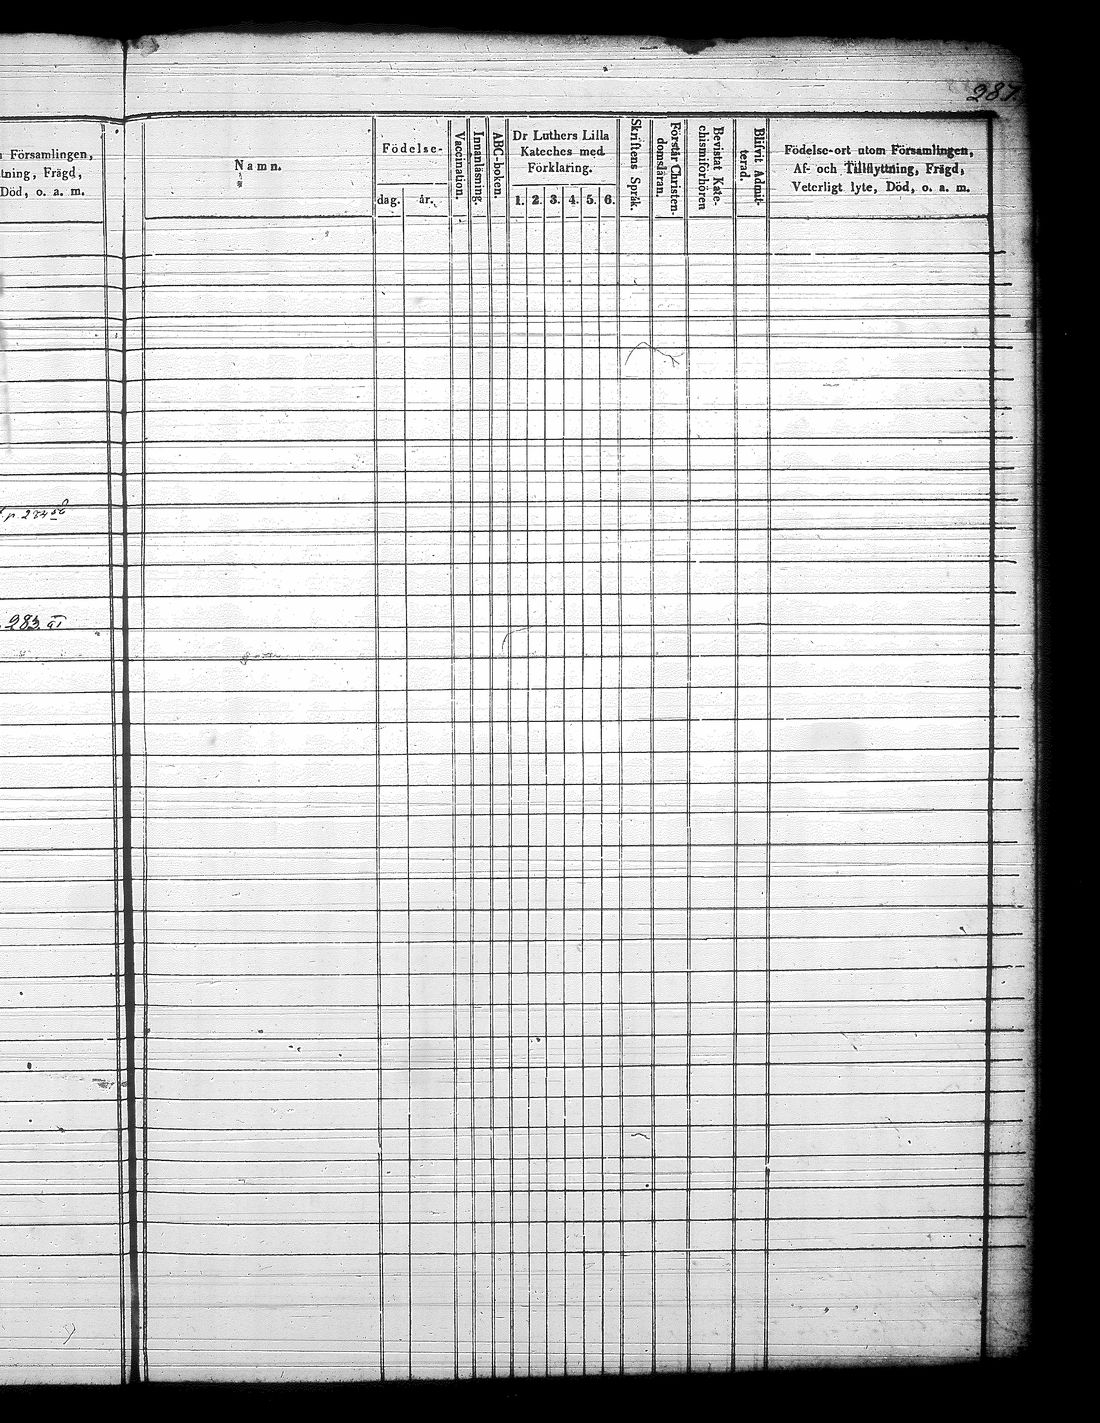 287.
Församlingen,
tning, Frägd,
Död, o. a. m.
283
Namn.
Födelse-
dag.
år.
Vaccination.
Innanläsning.
ABC-boken.
Dr Luthers Lilla
Kateches med
Förklaring.
1. 2. 3. 4. 5. 6.
Skriftens Språk.
Förstår Christen-
domsläran.
Bevistat Kate-
chismiförhören
Blifvit Admit-
terad.
Födelse-ort utom Församlingen,
Af- och Tillflyttning, Frägd,
Veterligt lyte, Död, o. a. m.